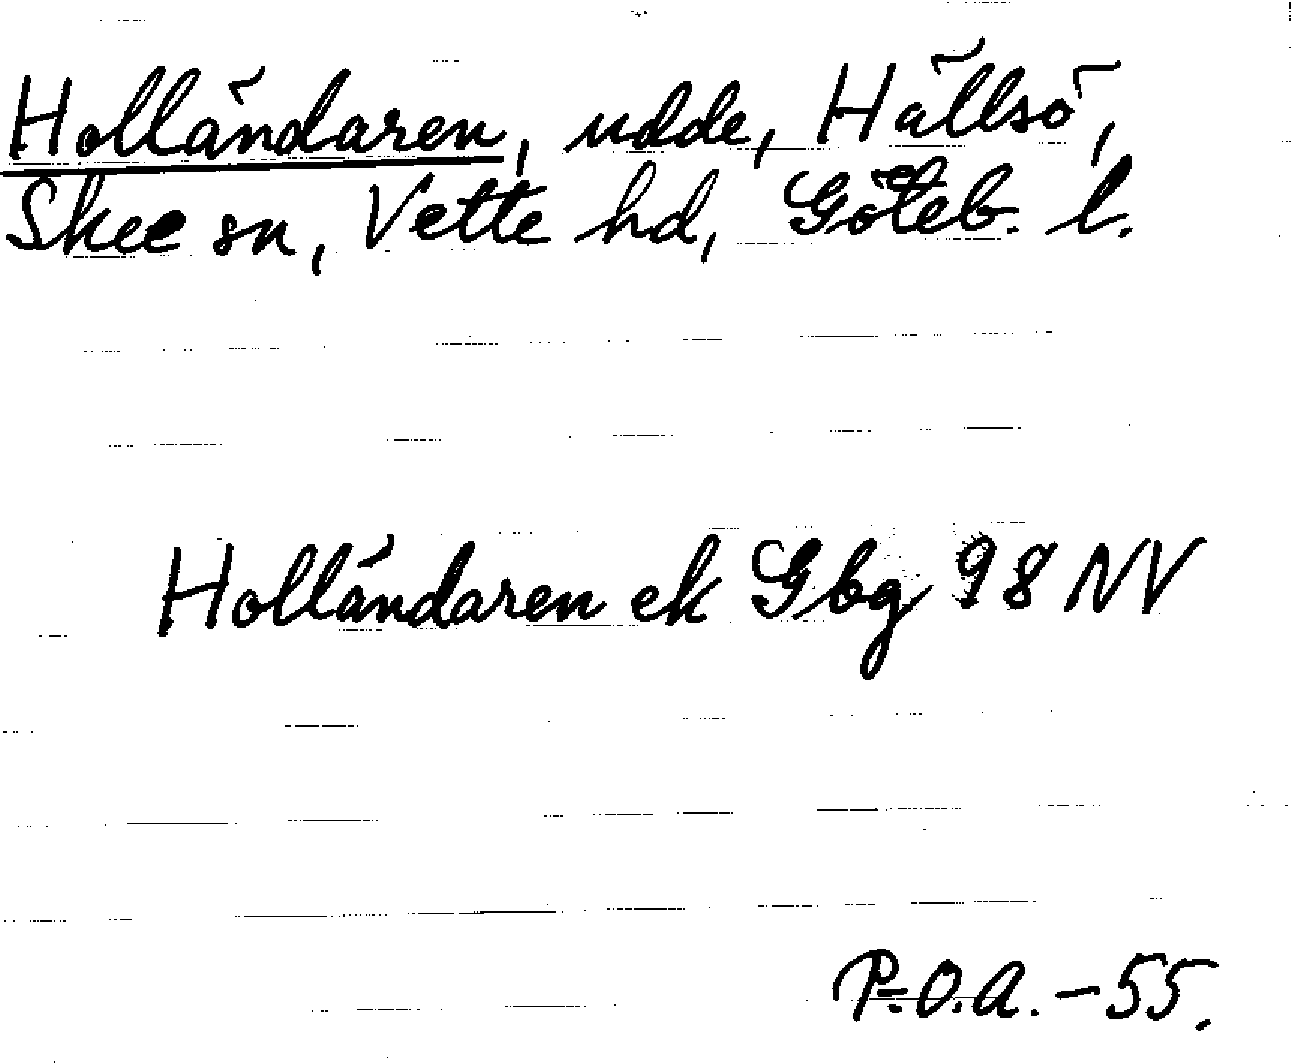 Holländaren, udde, Hällsö,
Skee sn, Vette hd, Göteb. l.
Holländaren ek Gbg 98 NV
P.-O.A. - 55.